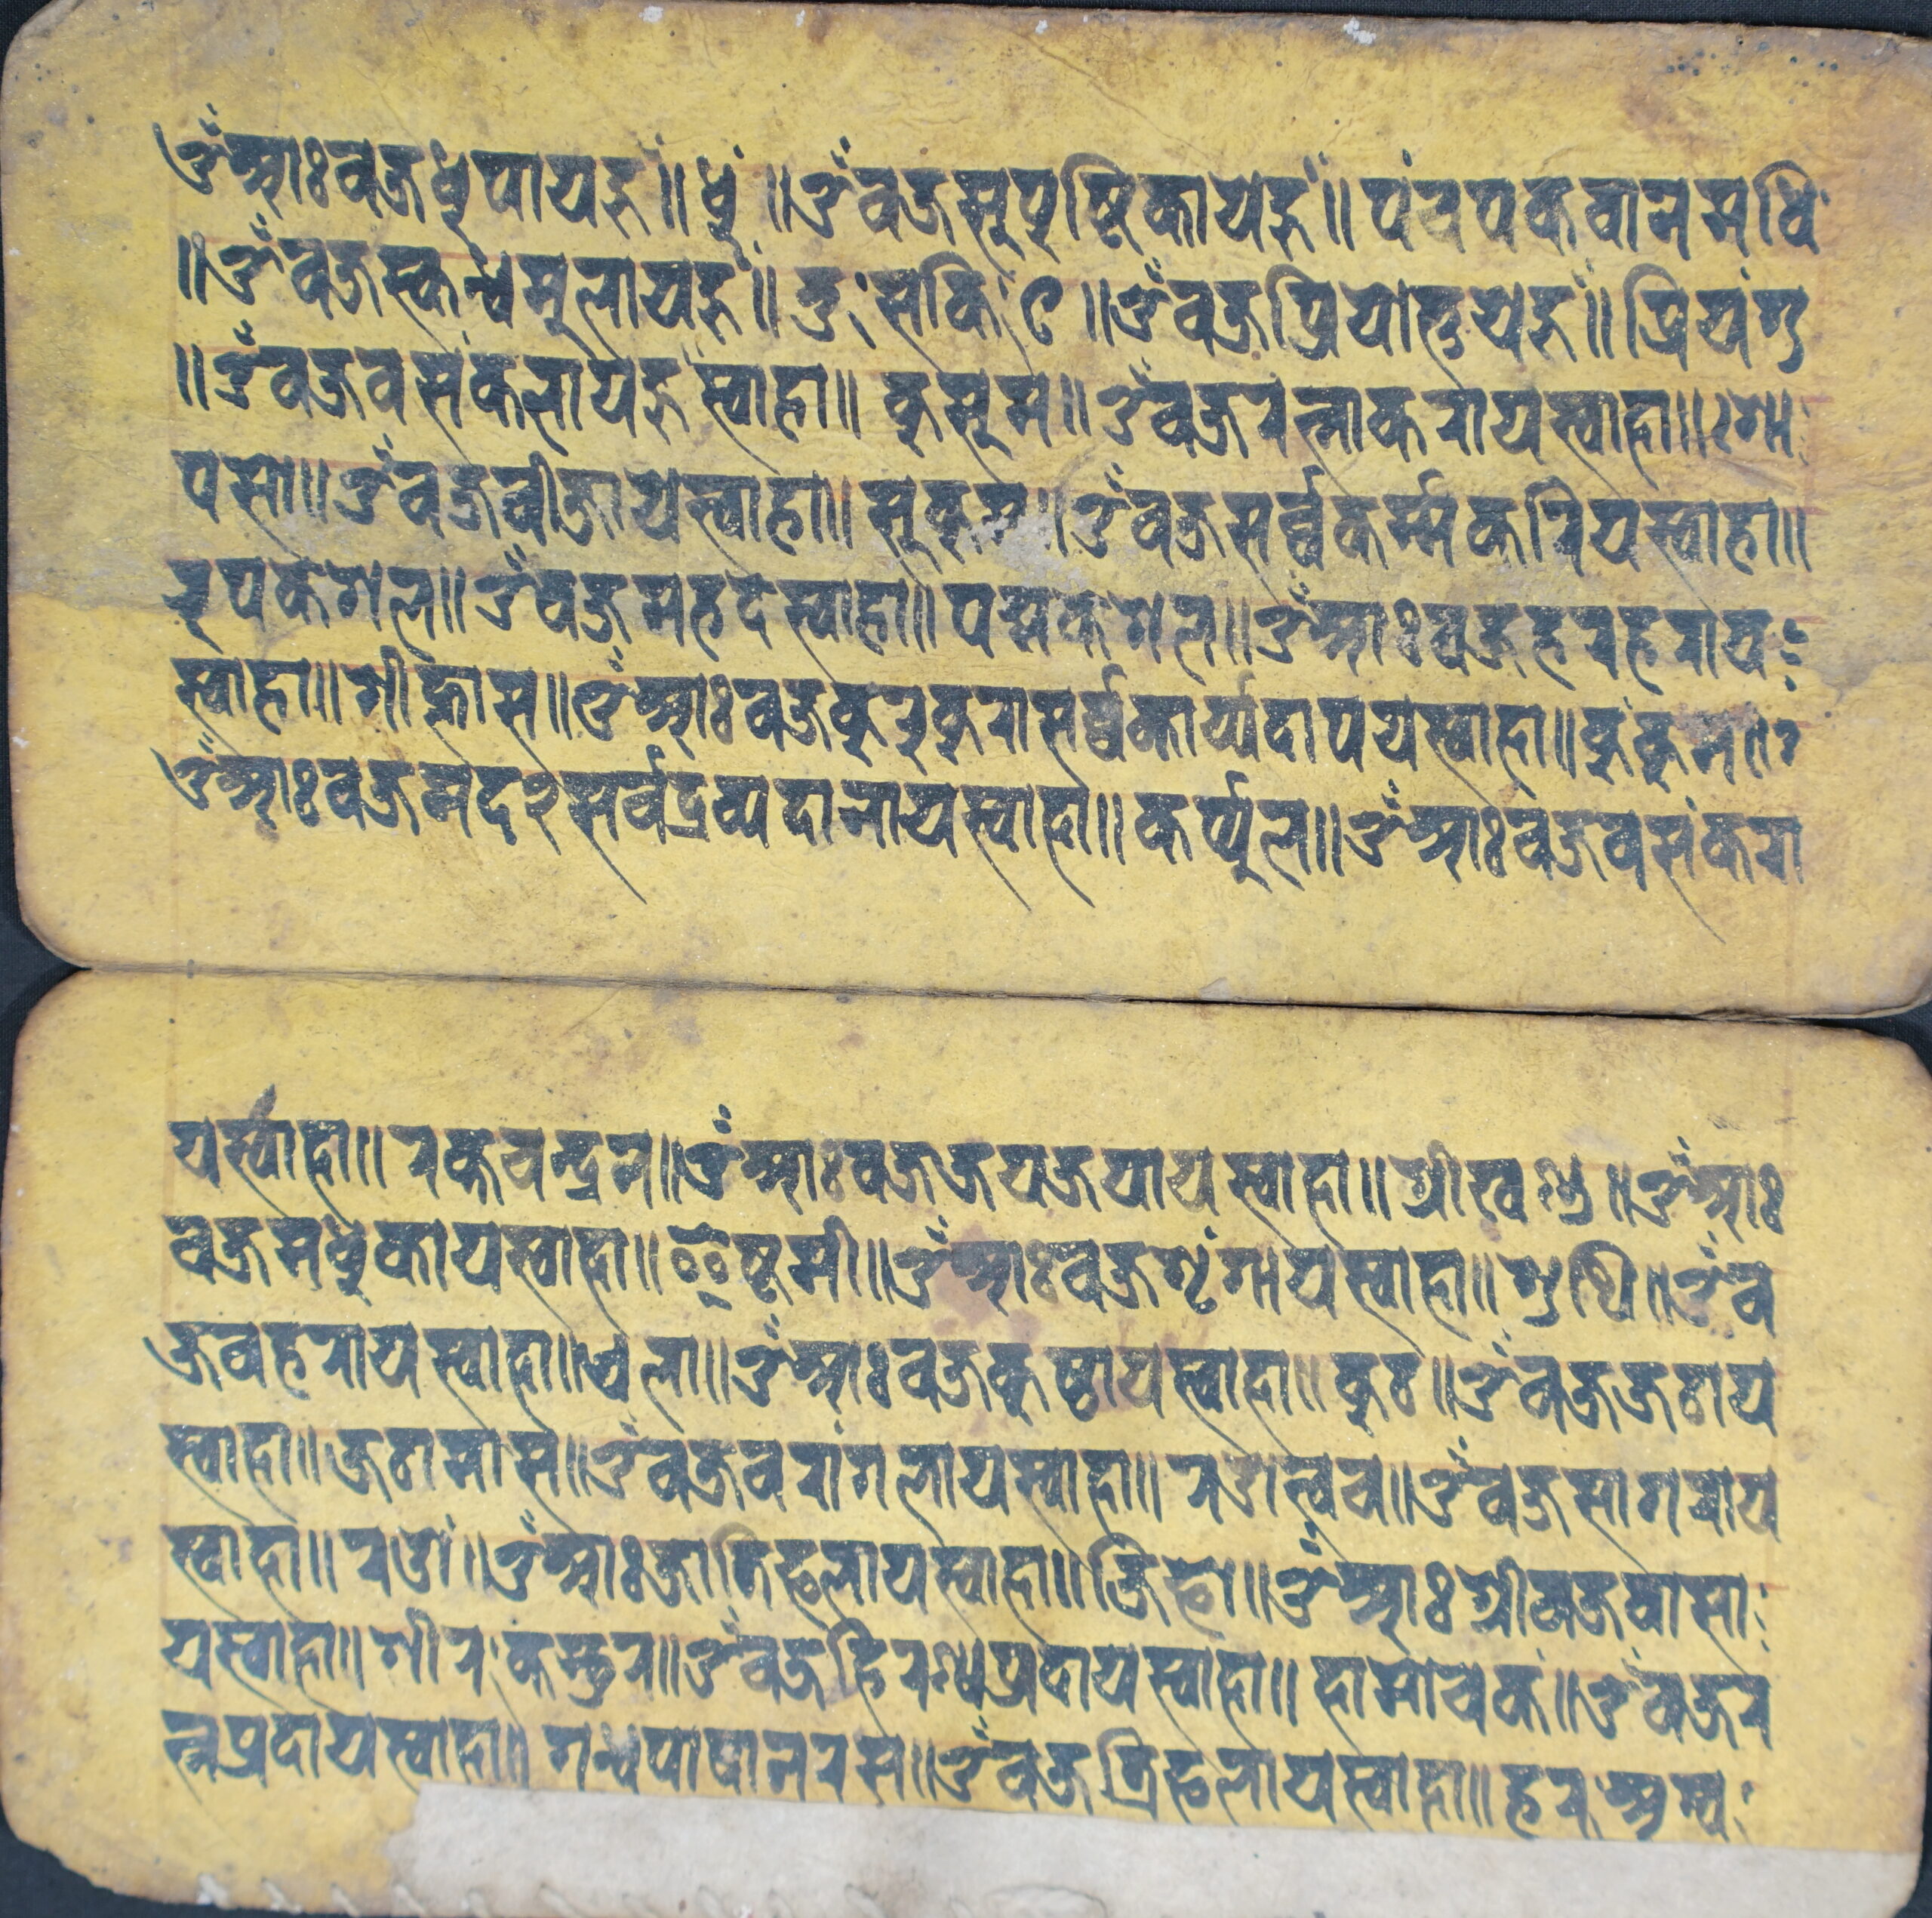 ॐआःवज्रधृपायहूं॥धृं॥ॐवज्रसूपृष्टिकायेहूं॥पंचपकवानमधि
॥ॐवज्रस्कन्धमूलायहूं॥दुःसकि ९॥ॐवज्रप्रियोस्तुयेहूं॥प्रियंगु
॥ॐवज्रवसंकलायहूंस्वाहा॥कुसूम॥ॐवज्ररत्नाकरायस्वाहा॥
पसो॥ॐवज्रवीजायेस्वाहा॥सूकूम॥ॐवज्रसर्व्वकर्म्मकरियस्वाहा॥
रृपकेशल॥ॐवज्रमहदस्वाहा॥पद्मकेशल॥ॐआःवज्रहरहरायः
स्वाहा॥श्रीह्वास॥ॐआःवज्रकुरुकुरासर्व्वकार्य्यदापयस्वाहा॥कुंकुम॥
ॐआःवज्रमद२सर्वद्रव्यदानायस्वाहा॥कर्प्पूल॥ॐआःवज्रवसंकरा
यर्स्वाहा॥रक्तचन्द्रन॥ॐआःवज्रजयजयायस्वाहा॥श्रीखण्ड॥ॐआः
वज्रमधुकायस्वाहा॥ष्टमी॥ॐआःवज्रशृंगायस्वाहा॥शुथि॥ॐव
ज्रवहरायस्वाहा॥एला॥ॐआःवज्रकुष्ठायस्वाहा॥कुठ॥ॐवज्रजटाय
स्वाहा॥जटामास॥ॐवज्रवरांगलायस्वाहा॥लगत्वच॥ॐवज्रसागराय
स्वाहा॥लगं॥ॐआःजातिफलायस्वाहा॥जिफो॥ॐआःश्रीवज्रवासाः
यस्वाहा॥शीरःकस्तुर॥ॐवज्रहिरण्यप्रदायस्वाहा॥हामोचकं॥ॐवज्रर
त्नप्रदायस्वाहा॥गन्धपाषानरस॥ॐवज्रत्रिफलायस्वाहा॥हर